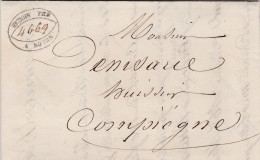 4669
Monsieur
Demsaue
huissier
Compiègne